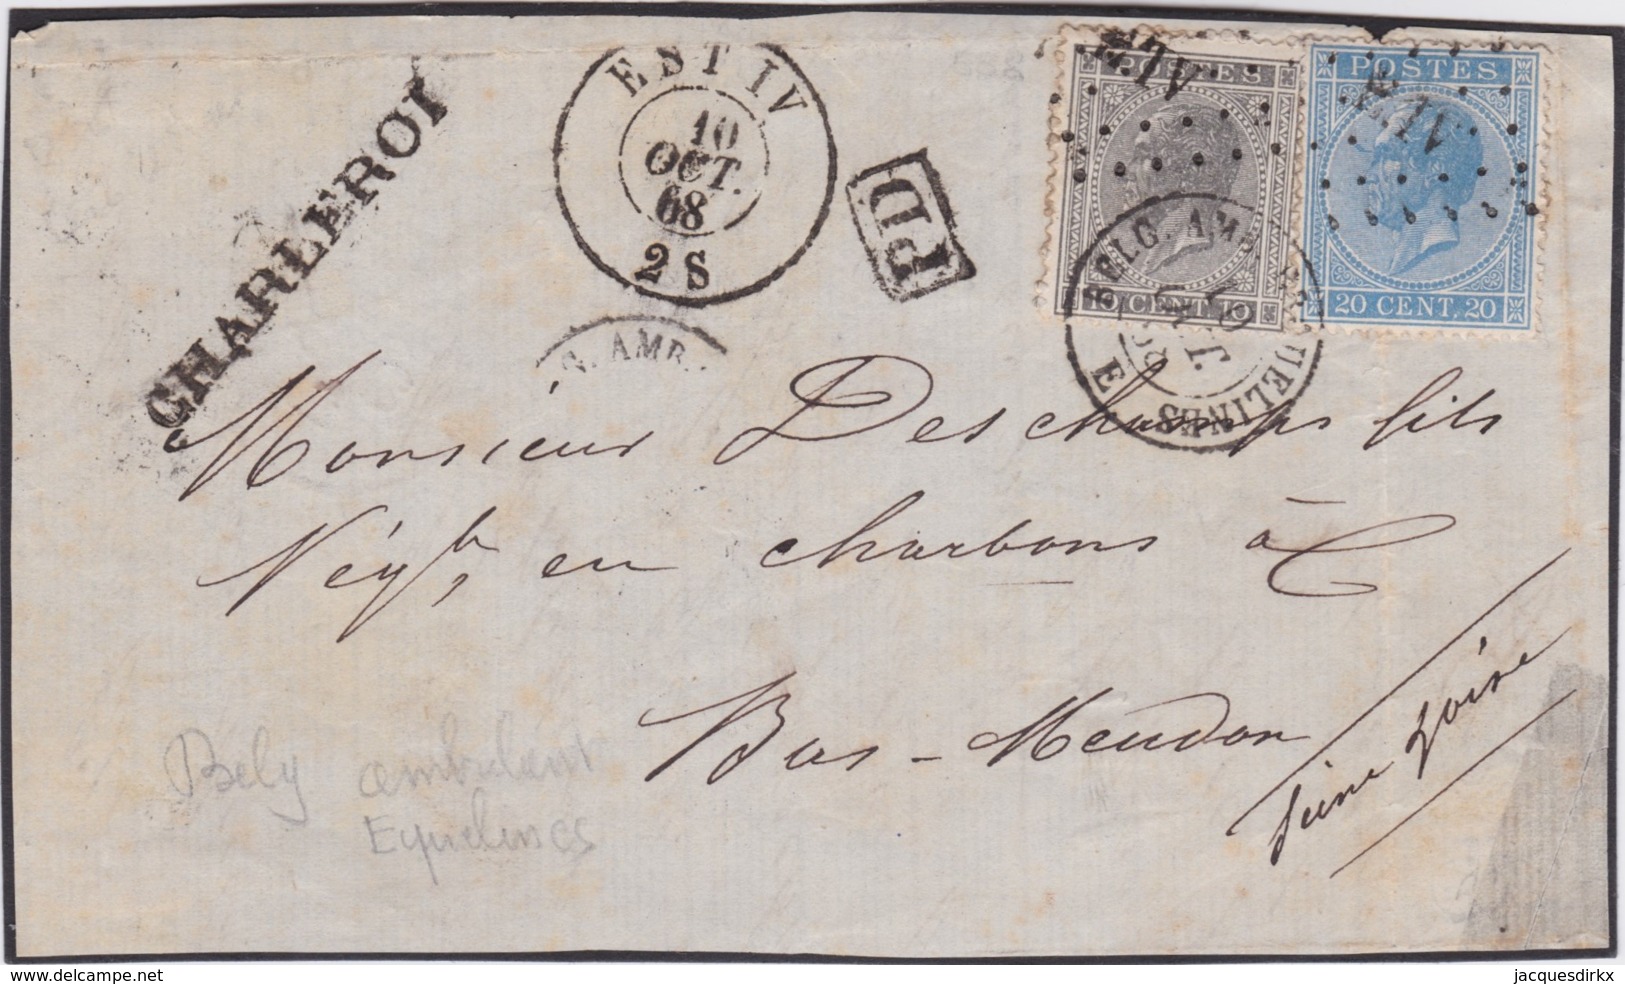 CHARLEROI
EST IV
10
OCT.
68
2 S
PD
POSTES
CENT. 10
POSTES
20 CENT. 20
BELG. AMB. ERQUELINES E
10 OCT
68
G. AMB.
Monsieur Deschamps fils
Négt, en charbons à
Bas-Meudon
Seine Loise
Belg ambulant
Equelines
delcampe.net
jacquesdirkx